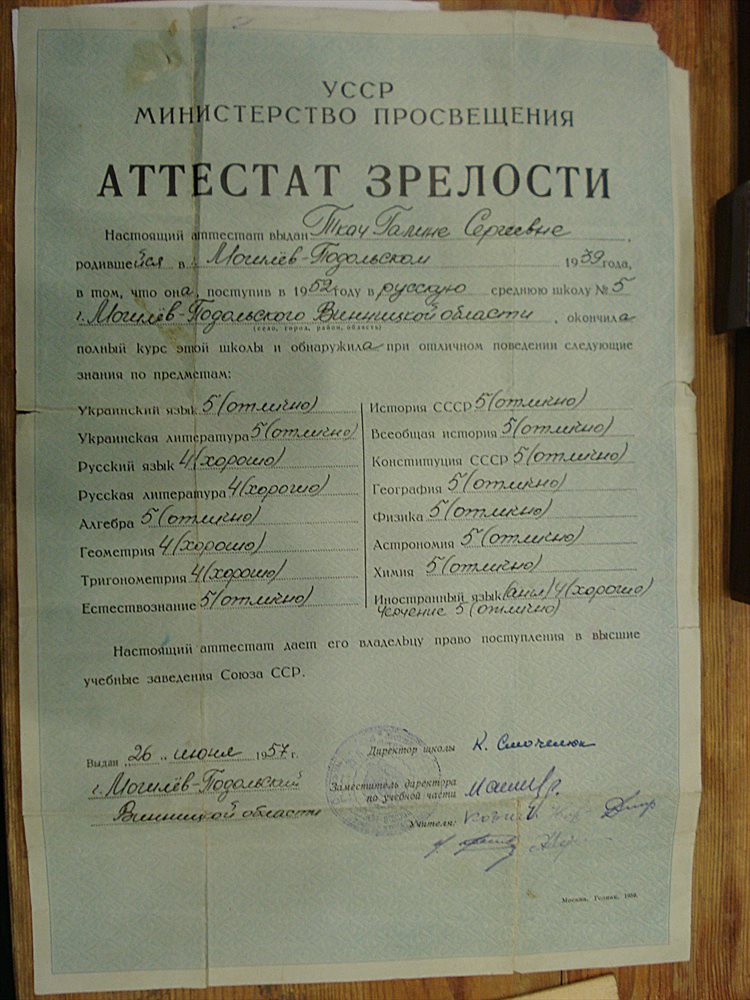 УССР
МИНИСТЕРСТВО ПРОСВЕЩЕНИЯ
АТТЕСТАТ ЗРЕЛОСТИ
Настоящий аттестат выдан Ткач Галине Сергеевне,
родившейся в г. Могилёв-Подольском 1939 года,
в том, что она, поступив в 1952 году в русскую среднюю школу № 5
г. Могилёв-Подольского Винницкой области, окончила
(село, город, район, область)
полный курс этой школы и обнаружила при отличном поведении следующие
знания по предметам:
Украинский язык 5 (отлично)
Украинская литература 5 (отлично)
Русский язык 4 (хорошо)
Русская литература 4 (хорошо)
Алгебра 5 (отлично)
Геометрия 4 (хорошо)
Тригонометрия 4 (хорошо)
Естествознание 5 (отлично)
История СССР 5 (отлично)
Всеобщая история 5 (отлично)
Конституция СССР 5 (отлично)
География 5 (отлично)
Физика 5 (отлично)
Астрономия 5 (отлично)
Химия 5 (отлично)
Иностранный язык (англ) 4 (хорошо)
Черчение 5 (отлично)
Настоящий аттестат дает его владельцу право поступления в высшие
учебные заведения Союза ССР.
Выдан „26„ июня 1957 г.
г. Могилёв-Подольский
Винницкой области
Директор школы
Заместитель директора
по учебной части
Учителя:
Москва, Гознак, 1950.